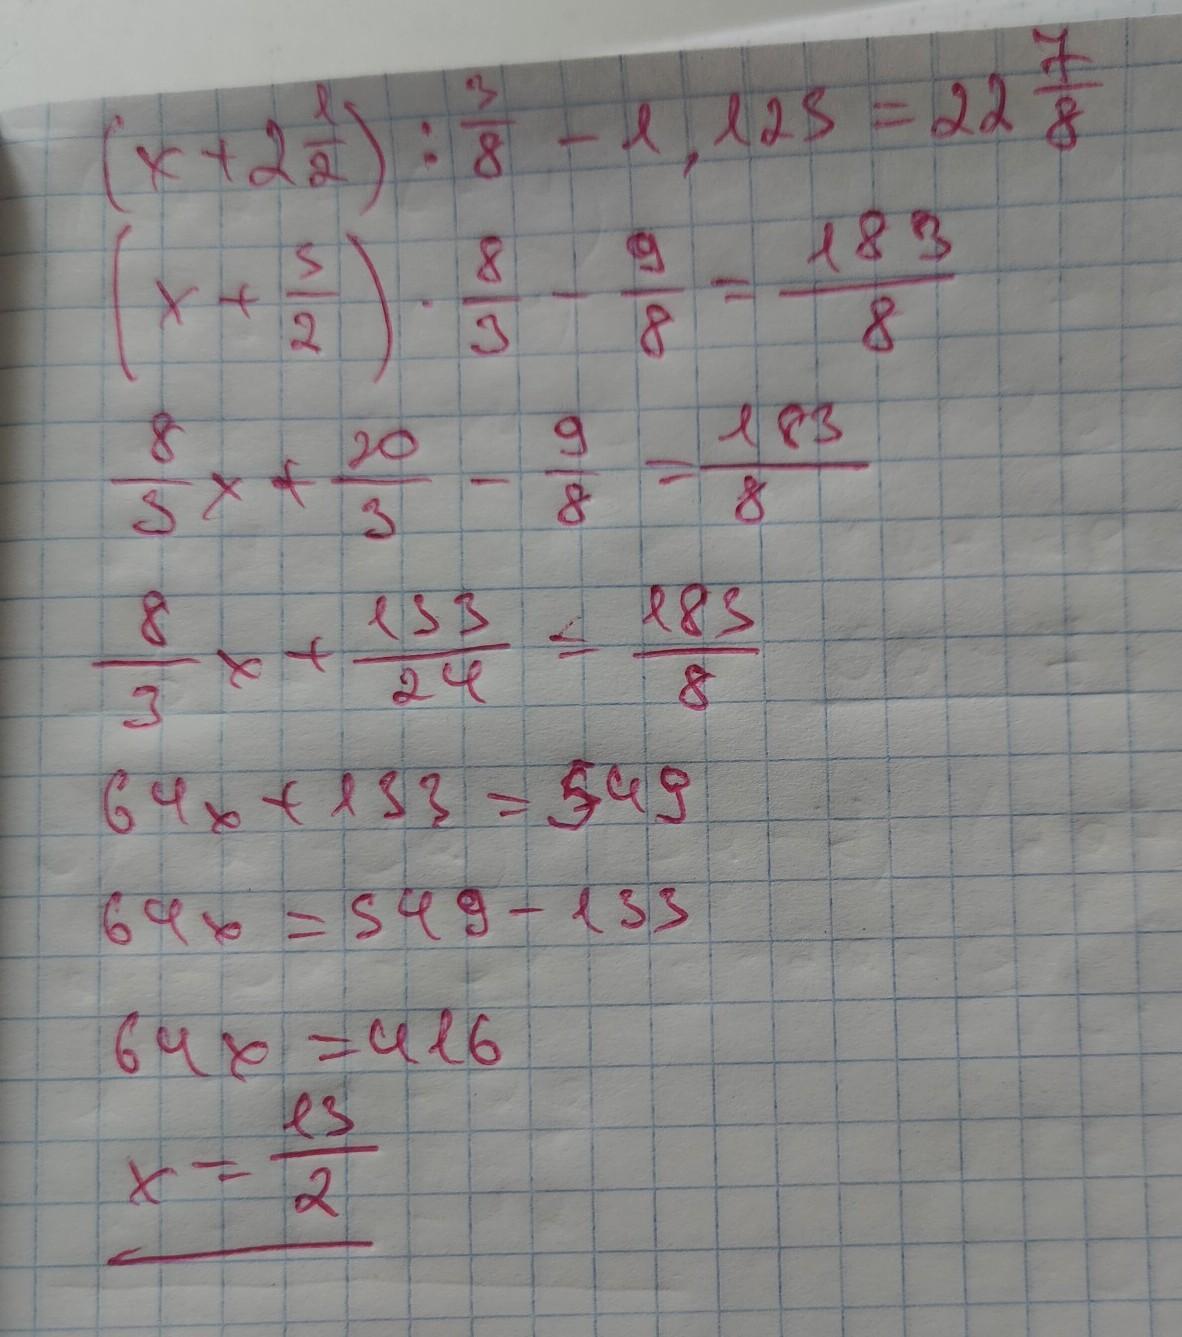 (x + 2 1/2) : 3/8 - 1,125 = 22 7/8
(x + 5/2) · 8/3 - 9/8 = 183/8
8/3 x + 20/3 - 9/8 = 183/8
8/3 x + 133/24 = 183/8
64x + 133 = 549
64x = 549 - 133
64x = 416
x = 13/2